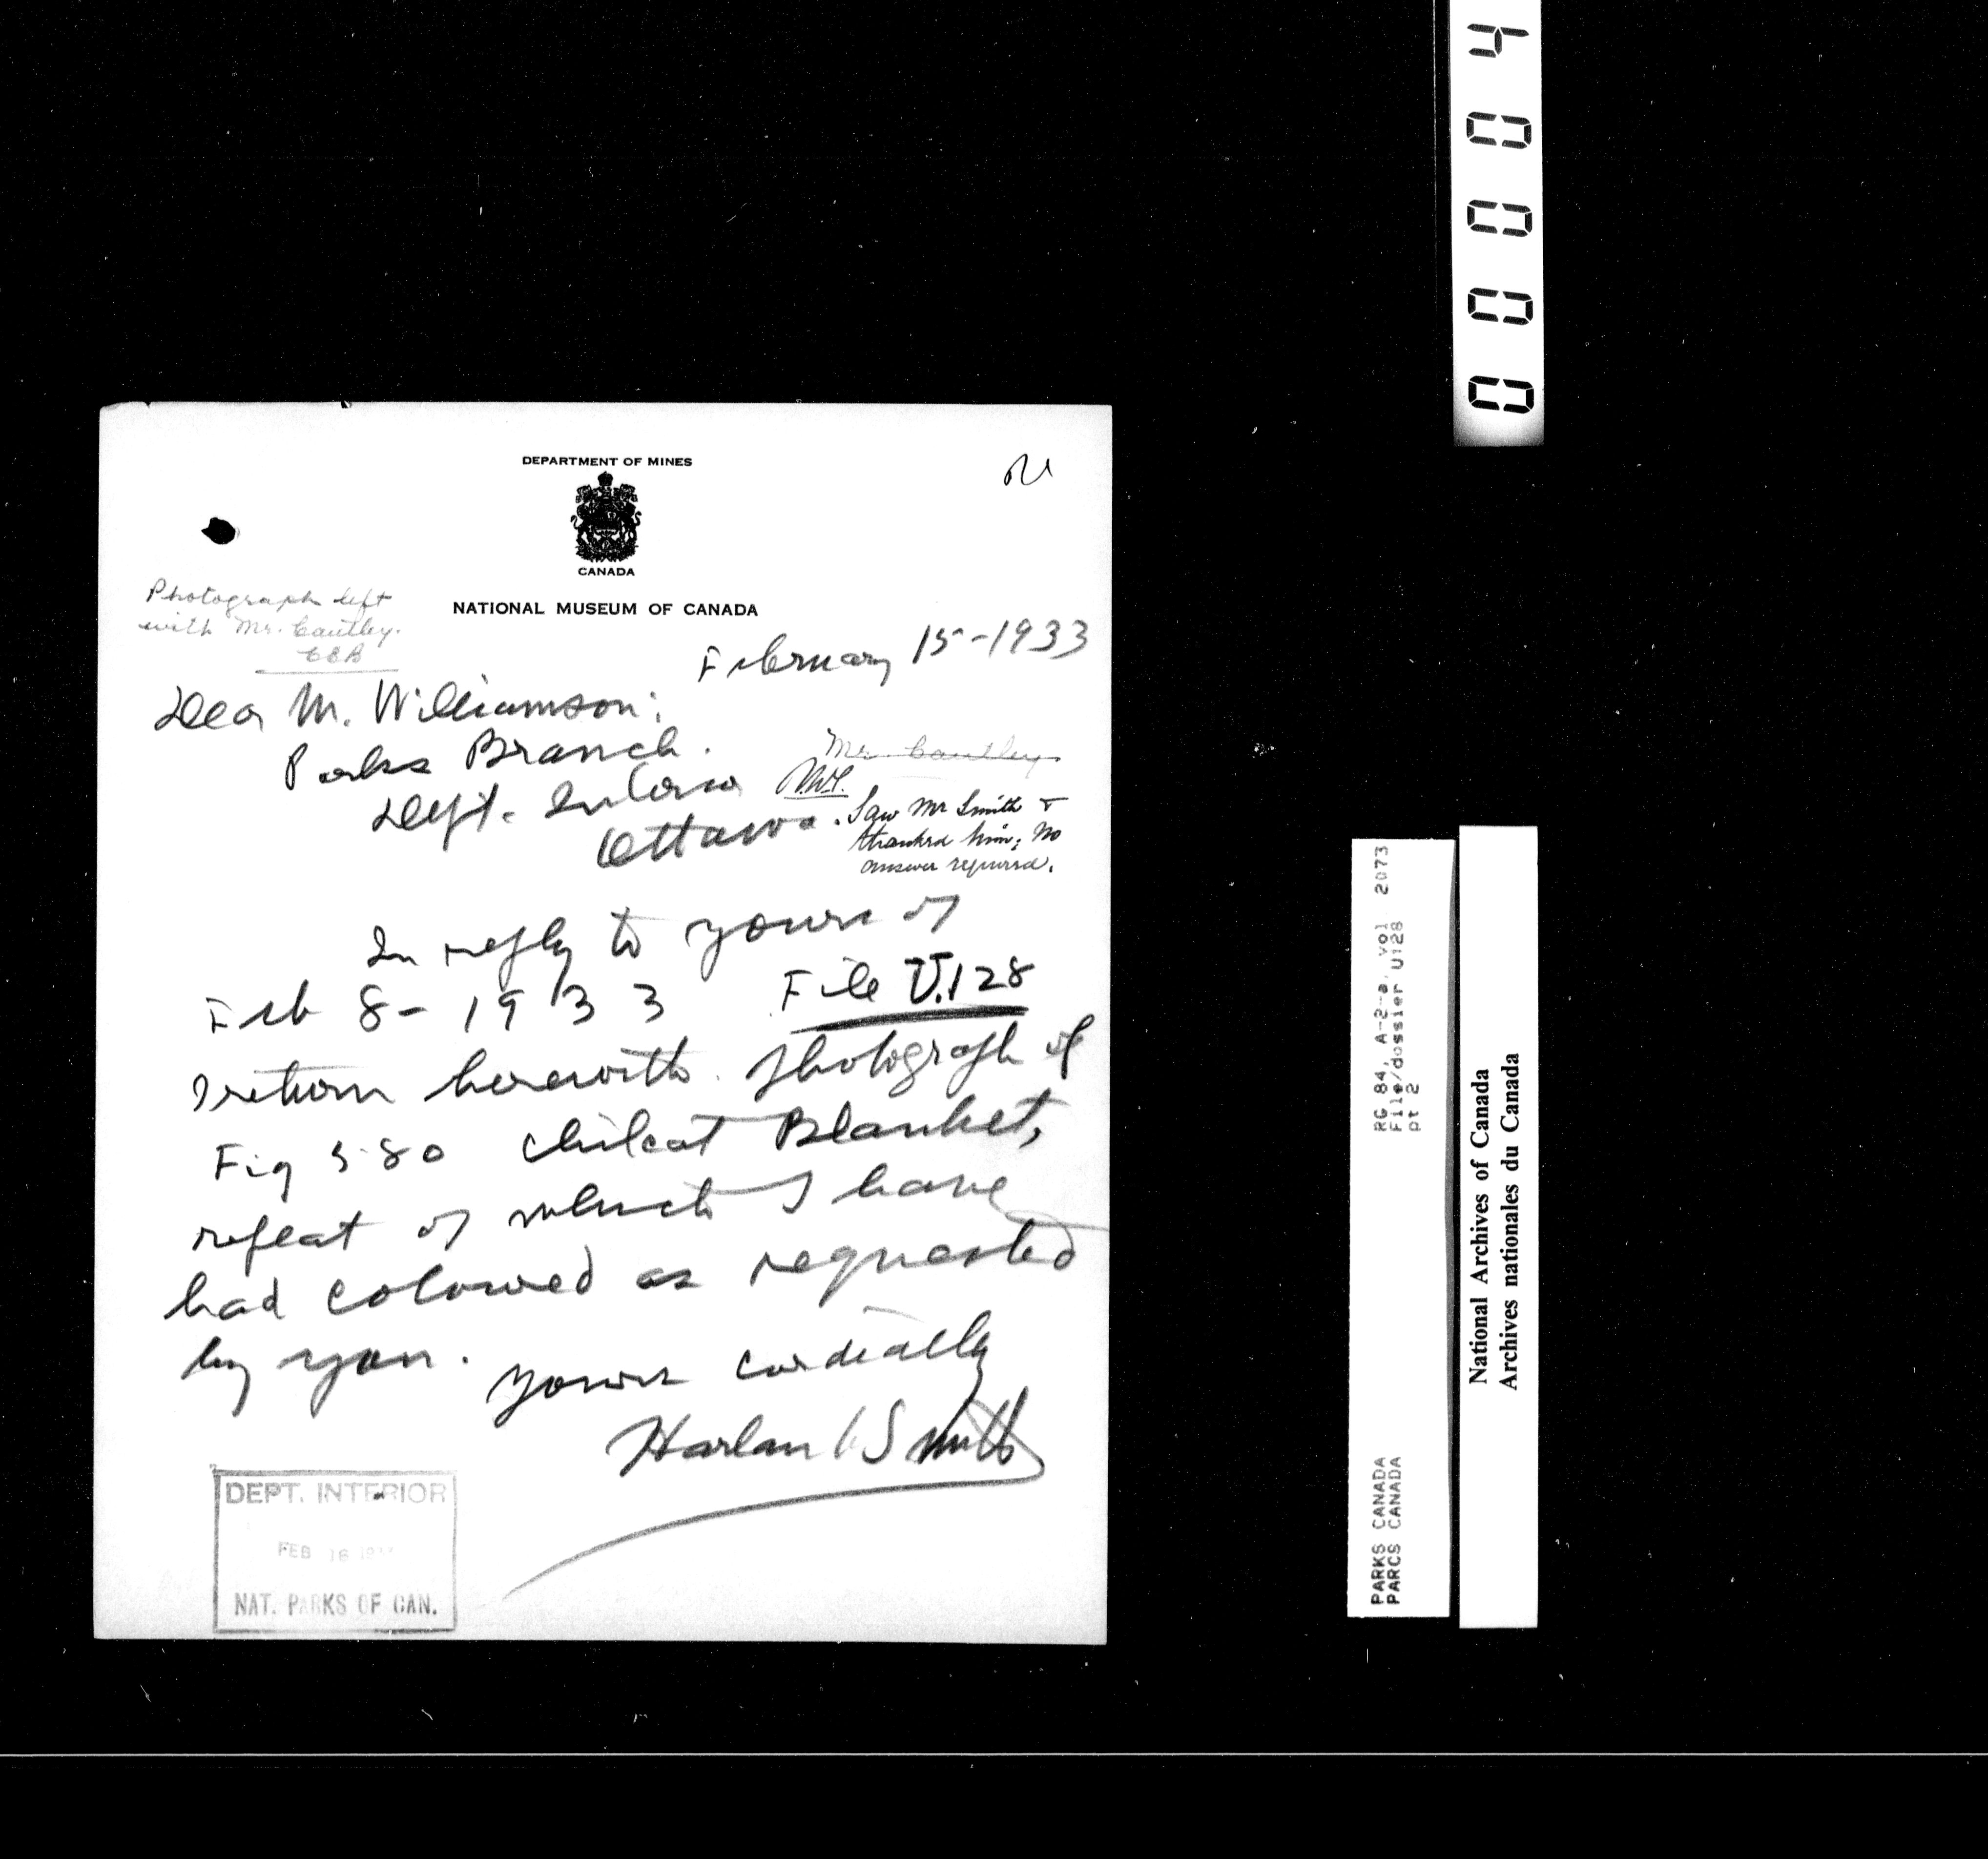 DEPARTMENT OF MINES
CANADA
NATIONAL MUSEUM OF CANADA
Photograph left
with Mr. Cautley.
February 15-1933
Dear M. Williamson:
Parks Branch.
Mr. Cautley
Dept. Interior
Ottawa.
Saw Mr Smith &
thanked him; No
answer required.
In reply to yours of
Feb 8-1933 File U.128
I return herewith photograph of
Fig 580 Chilcat Blanket,
repeat of which I have
had coloured as requested
by you.
Yours cordially
Harlan I Smith
DEPT. INTERIOR
FEB 16 1933
NAT. PARKS OF CAN.
00004
RG 84, A-2-a, vol 2073
File/dossier U128
pt 2
PARKS CANADA
PARCS CANADA
National Archives of Canada
Archives nationales du Canada